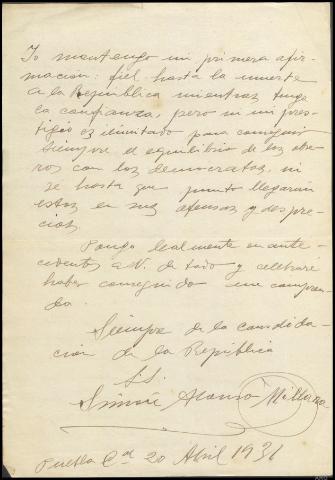 Yo mantengo mi primera afir-
macion: fiel hasta la muerte
a la Republica mientras tenga
la confianza, pero ni mi pres-
tigio es ilimitado para conseguir
siempre el equilibrio de los obre-
ros con los democratas, ni
se hasta que punto llegarán
estos en sus ofensas y despre-
cios.
Pongo lealmente en ante-
cedentes a V. de todo y celebraré
haber conseguido me compren-
da.
Siempre de la candida-
cion de la República
S.S.
Alonso
Puebla 20 Abril 1931